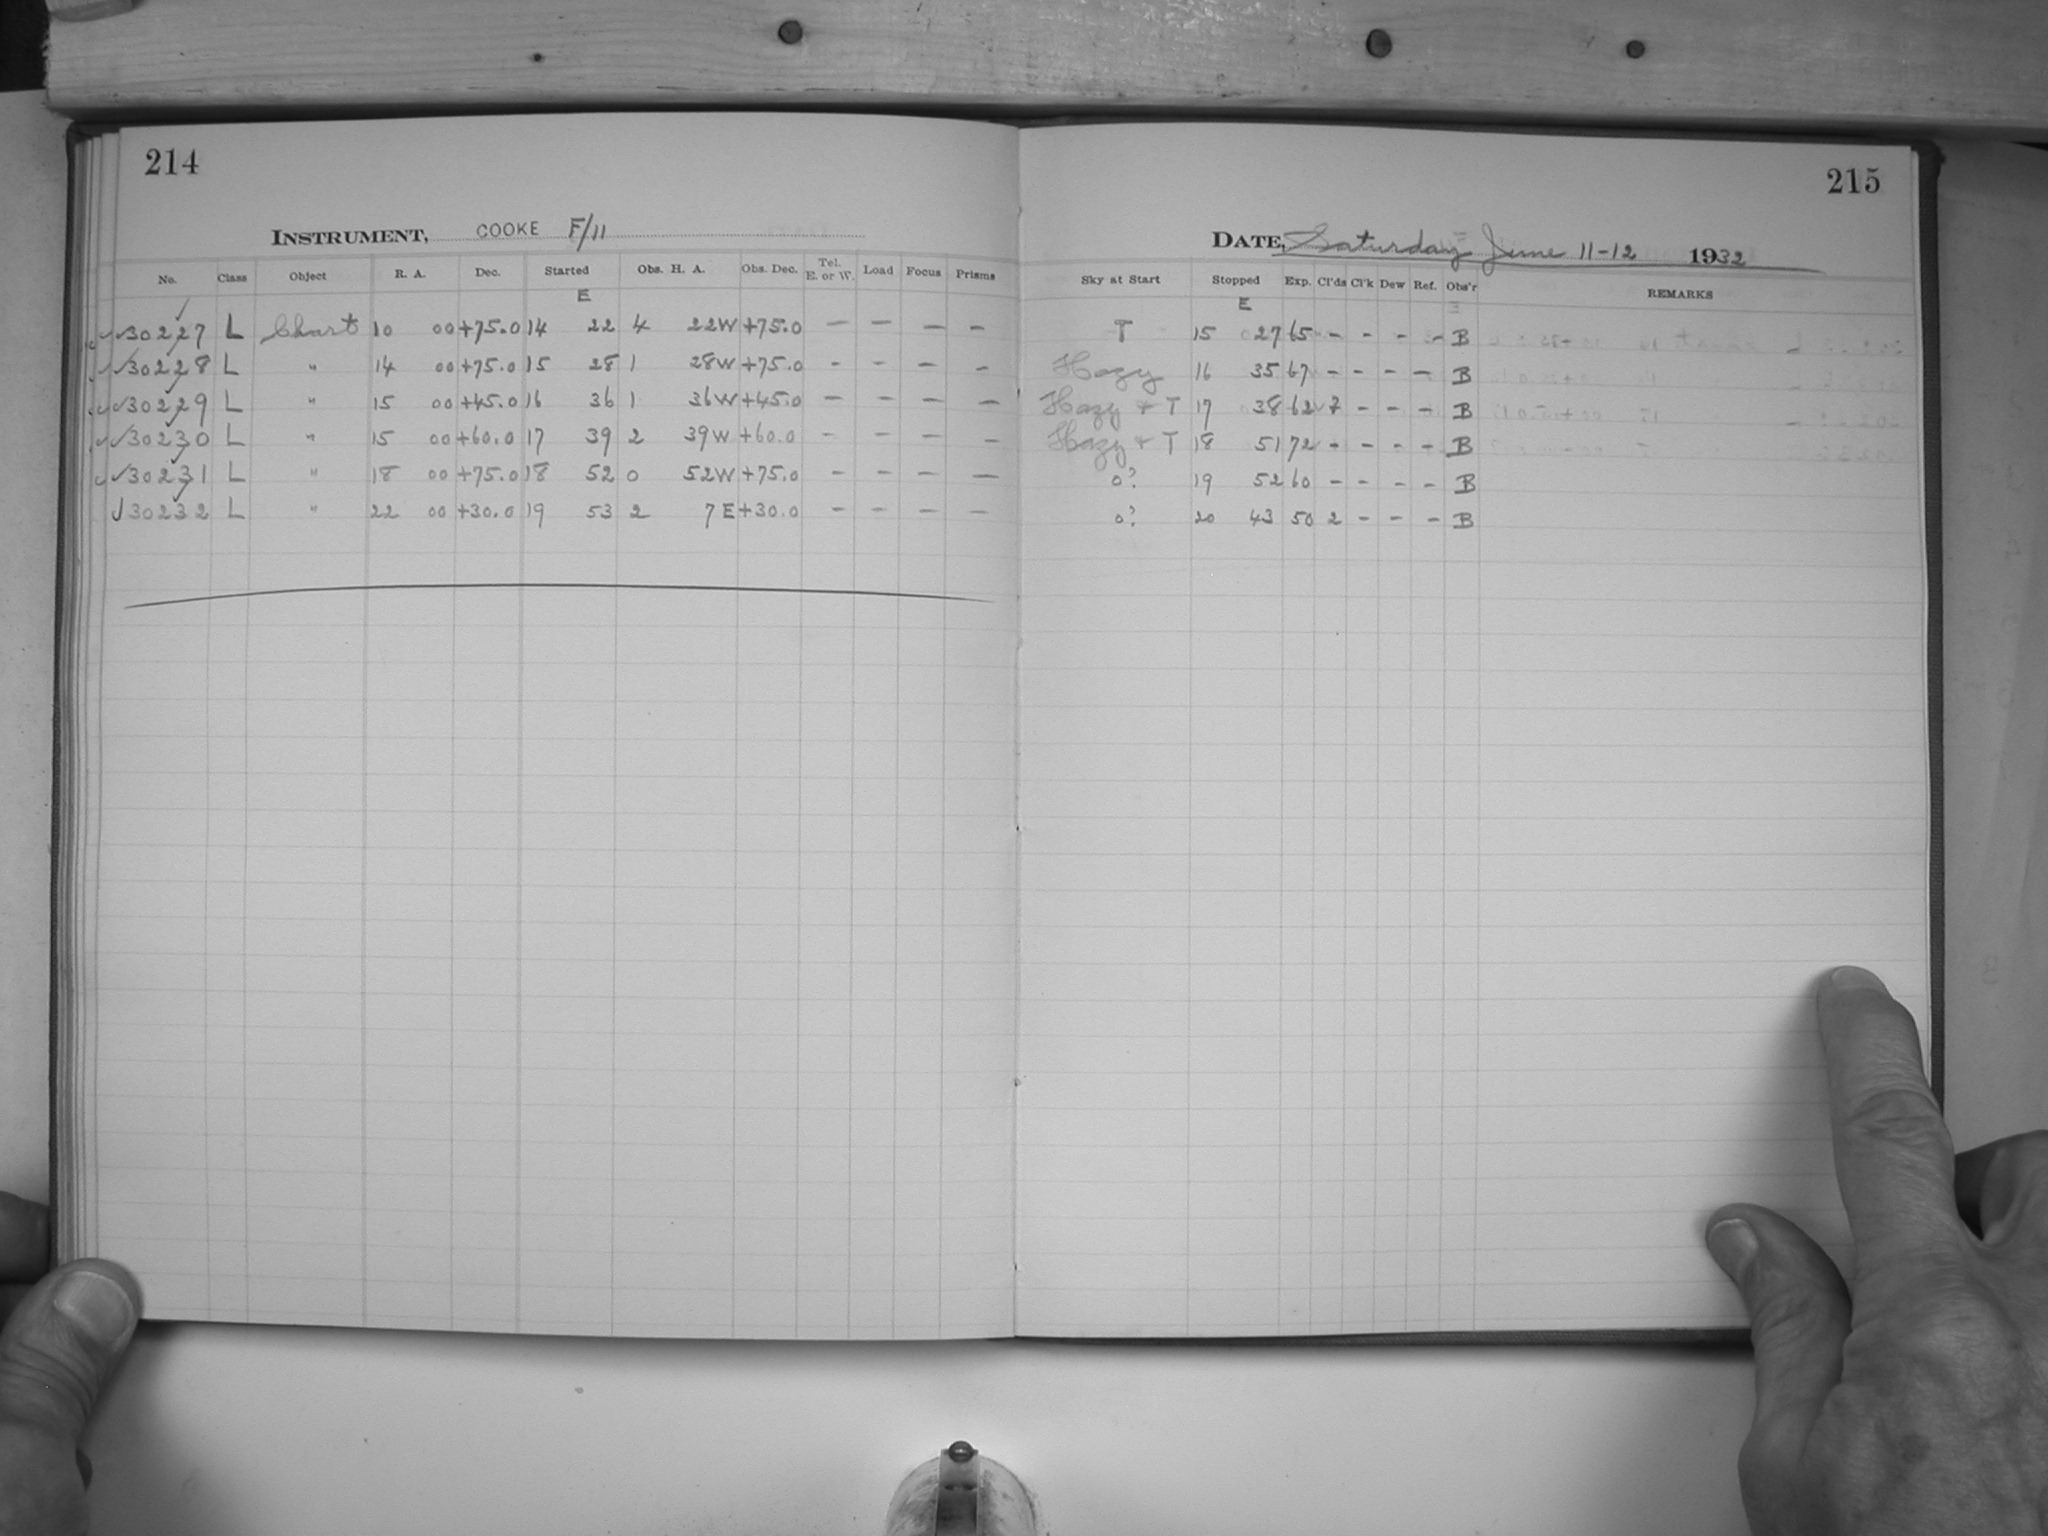 214
INSTRUMENT, COOKE F/11
No. Class Object R. A. Dec. Started Obs. H. A. Obs. Dec. Tel. E. or W. Load Focus Prisms
E
30227 L Chart 10 00 +75.0 14 22 4 22W +75.0 — — — —
30228 L " 14 00 +75.0 15 28 1 28W +75.0 - - - -
30229 L " 15 00 +45.0 16 36 1 36W +45.0 — — — —
30230 L " 15 00 +60.0 17 39 2 39W +60.0 - - - -
30231 L " 18 00 +75.0 18 52 0 52W +75.0 — — — —
30232 L " 22 00 +30.0 19 53 2 7E +30.0 - - - -
215
DATE, Saturday June 11-12 1932
Sky at Start Stopped Exp. Cl'ds Cl'k Dew Ref. Obs'r REMARKS
E
T 15 27 65 - - - - B
Hazy 16 35 67 - - - - B
Hazy + T 17 38 62 7 - - - B
Hazy + T 18 51 72 - - - - B
0? 19 52 60 - - - - B
0? 20 43 50 2 - - - B